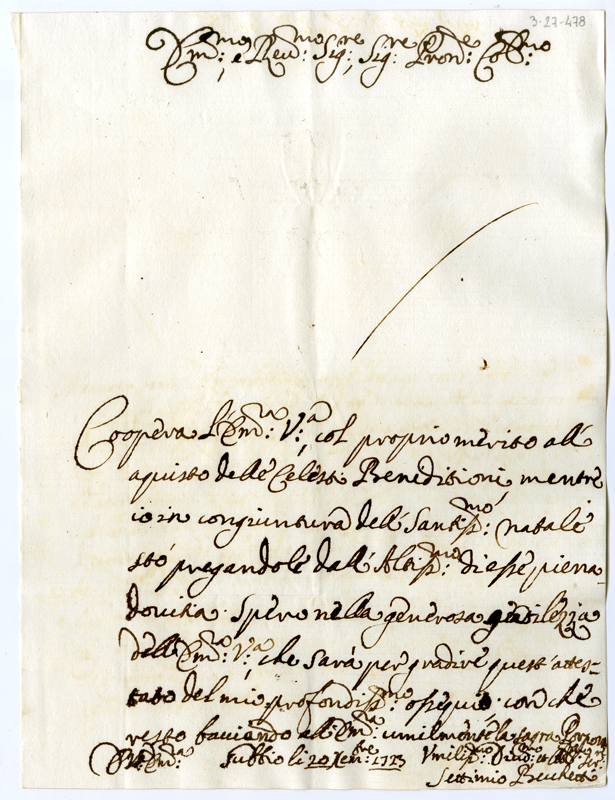 3-27-478
Em:mo, e Rev:mo Sig:re, Sig:re Pron:e Col:mo
Coopera l'Em:za V:a, col proprio merito all'
aquisto delle Celesti Beneditioni, mentre
io in congiuntura dell' Santiss:mo natale
stò pregandole dall' Altiss:mo di esse piena
dovitia. Spero nella generosa gentilezza
dell' Em:za V:a, che sarà per gradire quest' attes-
tato del mio profondiss:mo ossequio con che
resto baciando all' Em:za umilmente la sagra Porpora
Gubbio li 20 Xem:bre 1723 Umiliss:mo Div:mo
Settimio Becchetti